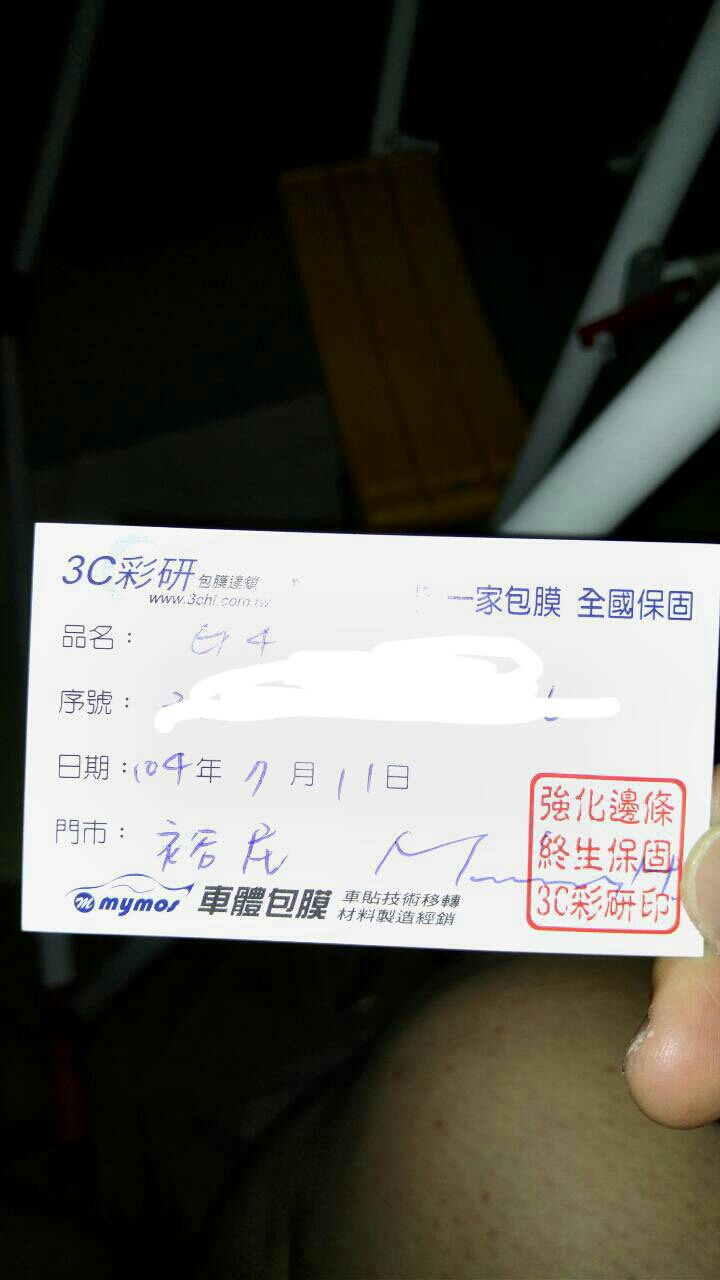 3C彩研 包膜連鎖
www.3chi.com.tw
一家包膜 全國保固
品名： G4
序號：
日期：104年 7月 11日
門市： 裕民
mymos 車體包膜 車貼技術移轉
材料製造經銷
強化邊條
終生保固
3C彩研印